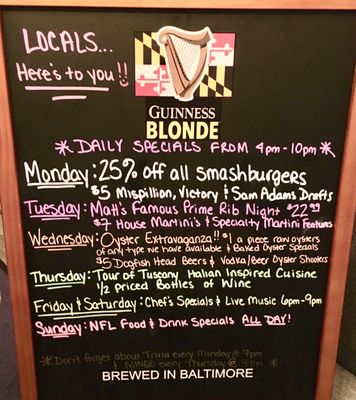 LOCALS...
Here's to you!!
GUINNESS
BLONDE
* DAILY SPECIALS FROM 4pm-10pm *
Monday: 25% off all smashburgers
$5 Mispillion, Victory & Sam Adams Drafts
Tuesday: Matt's Famous Prime Rib Night $22.99
$7 House Martini's & Specialty Martini Features
Wednesday: Oyster Extravaganza!! $1 a piece raw oysters
of any type we have available & Baked Oyster Specials
$5 Dogfish Head Beers & Vodka/Beer Oyster Shooters
Thursday: Tour of Tuscany Italian Inspired Cuisine
1/2 priced Bottles of Wine
Friday & Saturday: Chef's Specials & Live Music 6pm-9pm
Sunday: NFL Food & Drink Specials ALL DAY!
*Don't forget about Trivia every Monday @ 7pm
& BINGO every Thursday @ 7pm *
BREWED IN BALTIMORE